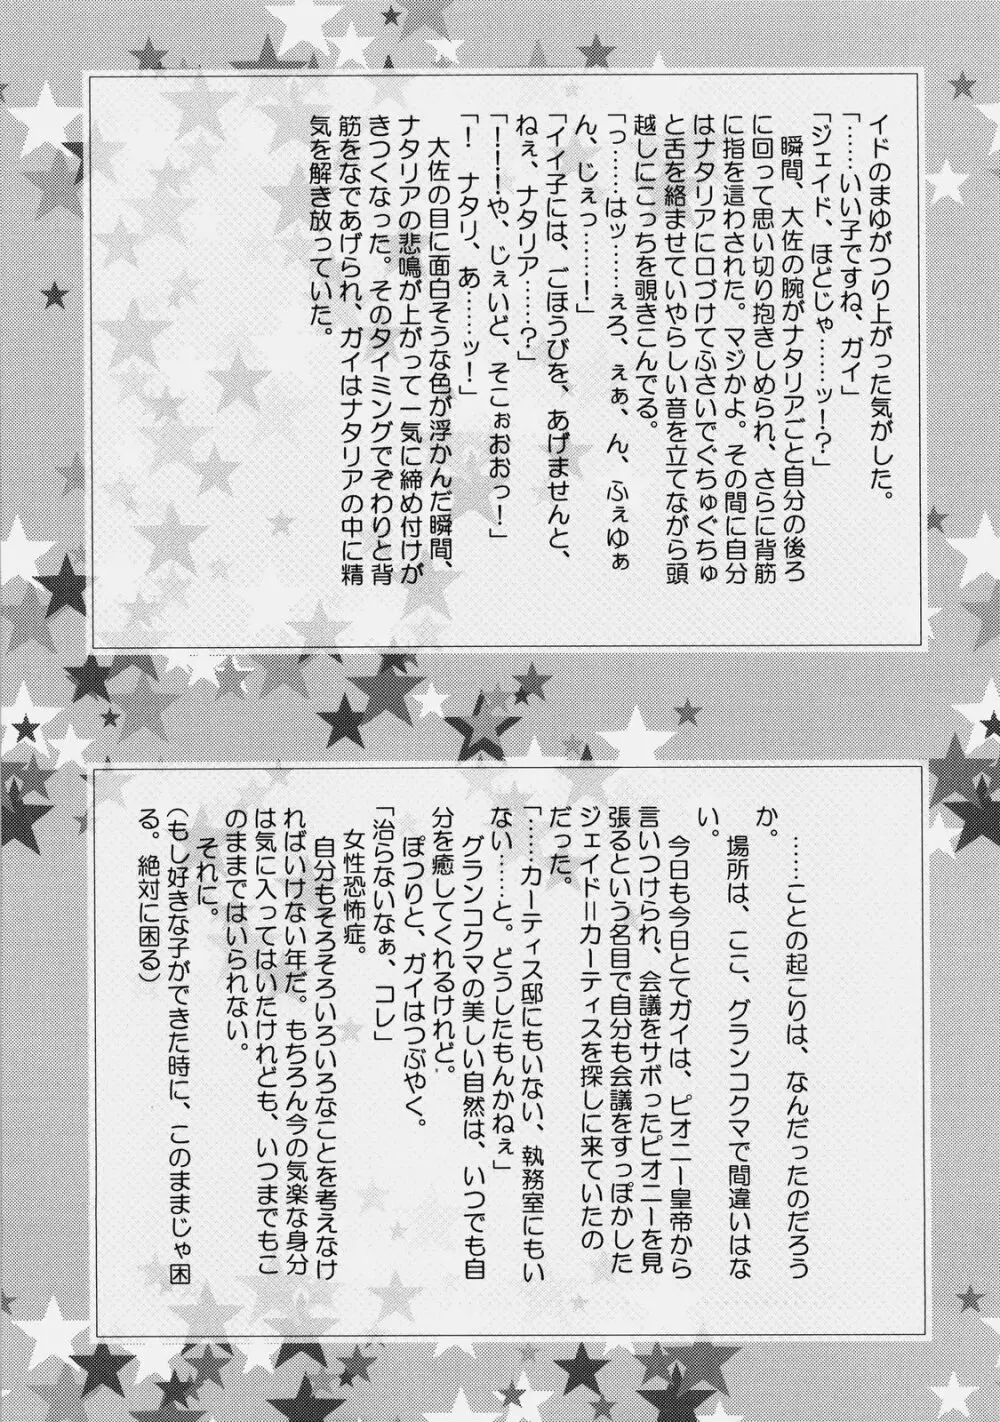 イドのまゆがつり上がった気がした。
「……いい子ですね、ガイ」
「ジェイド、ほどじゃ……ッ！？」
瞬間、大佐の腕がナタリアごと自分の後ろ
に回って思い切り抱きしめられ、さらに背筋
に指を這わされた。マジかよ。その間に自分
はナタリアに口づけてふさいでぐちゅぐちゅ
と舌を絡ませていやらしい音を立てながら頭
越しにこっちを覗きこんでる。
「っ……はッ……ぇろ、ぇぁ、ん、ふぇゆぁ
ん、じぇっ……！」
「イイ子には、ごほうびを、あげませんと、
ねぇ、ナタリア……？」
「！！！や、じぇいど、そこぉおおっ！」
「！　ナタリ、あ……ッ！」
大佐の目に面白そうな色が浮かんだ瞬間、
ナタリアの悲鳴が上がって一気に締め付けが
きつくなった。そのタイミングでぞわりと背
筋をなであげられ、ガイはナタリアの中に精
気を解き放っていた。
……ことの起こりは、なんだったのだろう
か。
場所は、ここ、グランコクマで間違いはな
い。
今日も今日とてガイは、ピオニー皇帝から
言いつけられ、会議をサボったピオニーを見
張るという名目で自分も会議をすっぽかした
ジェイド＝カーティスを探しに来ていたの
だった。
「……カーティス邸にもいない、執務室にもい
ない……と。どうしたもんかねぇ」
グランコクマの美しい自然は、いつでも自
分を癒してくれるけれど。
ぽつりと、ガイはつぶやく。
「治らないなぁ、コレ」
女性恐怖症。
自分もそろそろいろいろなことを考えなけ
ればいけない年だ。もちろん今の気楽な身分
は気に入ってはいたけれども、いつまでもこ
のままではいられない。
それに。
（もし好きな子ができた時に、このままじゃ困
る。絶対に困る）